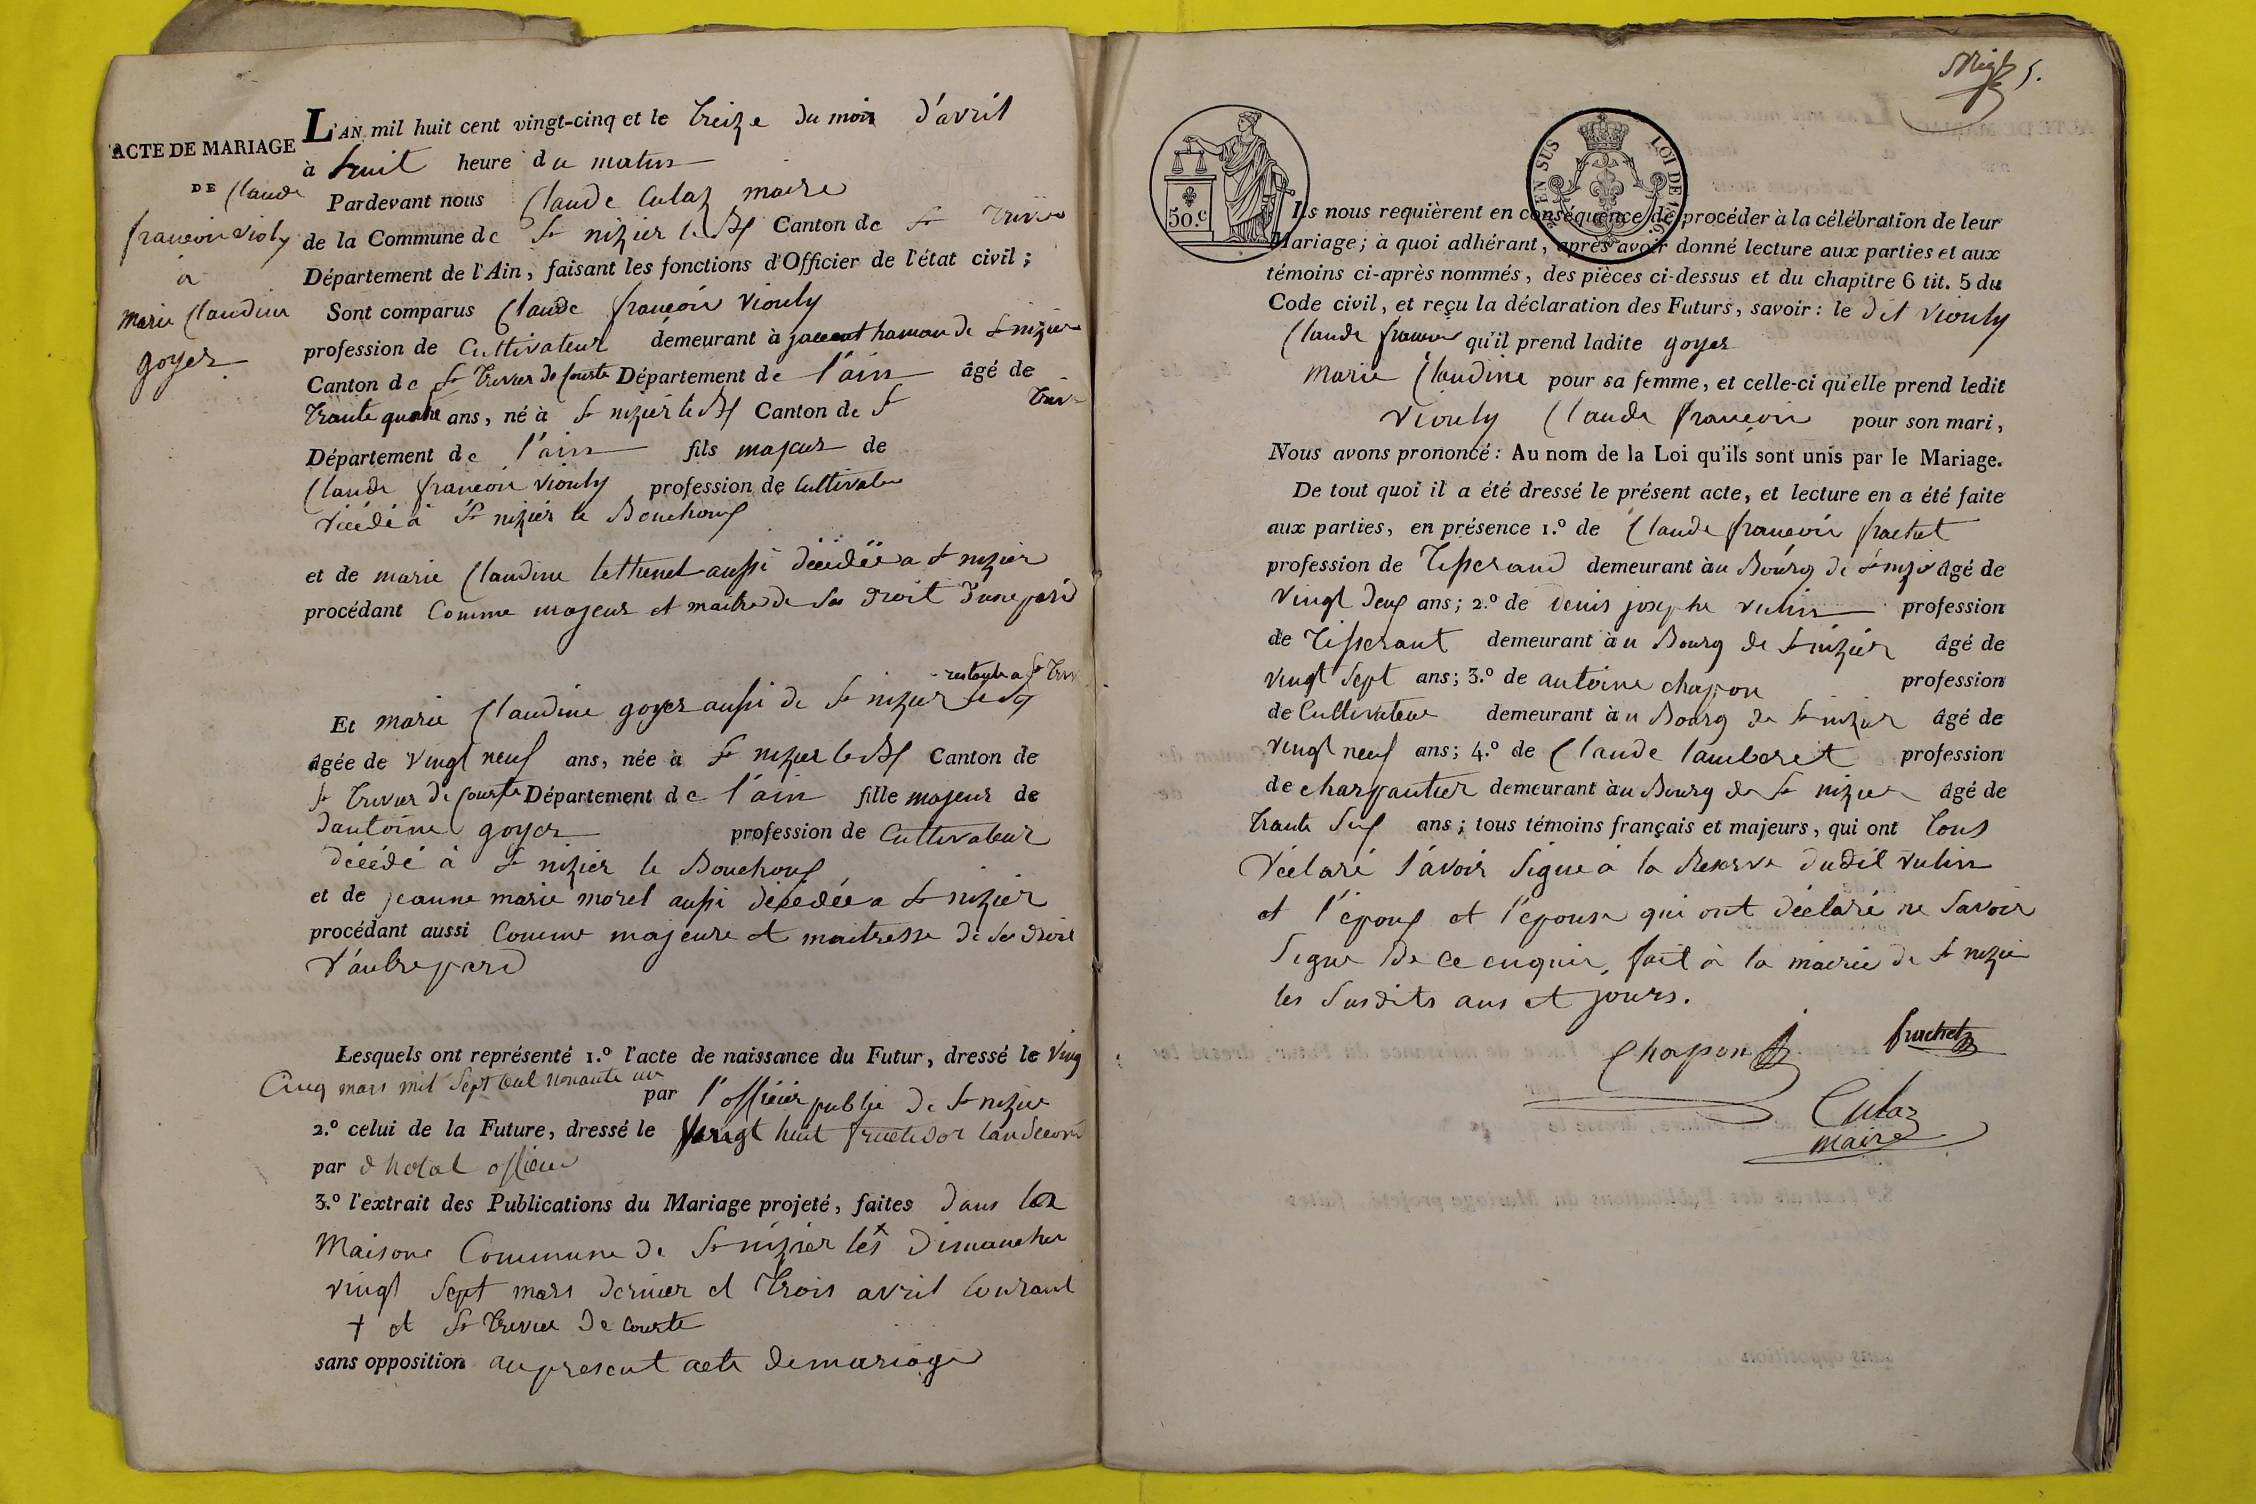 ACTE DE MARIAGE
DE Claude
francois violy
à
marie Claudine
goyer
L'AN mil huit cent vingt-cinq et le treize du mois d'avril
à huit heure du matin
Pardevant nous Claude Culaz maire
de la Commune de St nizier le Bx Canton de St Trivier
Département de l'Ain, faisant les fonctions d'Officier de l'état civil;
Sont comparus Claude françois viouly
profession de Cultivateur demeurant à hamau de St nizier
Canton de St trivier de Courte Département de l'ain âgé de
trante quatre ans, né à St nizier le Bx Canton de St Triv
Département de l'ain fils majeur de
Claude françois viouly profession de Cultivateur
décédé à St nizier le Bouchoux
et de marie Claudine aussi décédée a St nizier
procédant Comme majeur et maitre de ses droit d'une pard
restante a St Triv
Et marie Claudine goyer aussi de St nizier le Bx
âgée de vingt neuf ans, née à St nizier le Bx Canton de
St Trivier de Courte Département de l'ain fille majeur de
d'antoine goyer profession de Cultivateur
décédé à St nizier le Bouchoux
et de jeanne marie morel aussi décédée a St nizier
procédant aussi Comme majeure et maitresse de ses droit
d'autre pard
Lesquels ont représenté 1.º l'acte de naissance du Futur, dressé le ving
Cinq mars mil sept Cent nonante un
par l'officier public de St nizier
2.º celui de la Future, dressé le vingt huit fructidor l'an second
par officier
3.º l'extrait des Publications du Mariage projeté, faites dans la
Maison Commune de St nizier les x dimanches
vingt sept mars dernier et trois avril Courant
† et St trivier de Courte
sans opposition au present acte de mariage
5.
50.c
EN SUS
LOI DE 1816.
Ils nous requièrent en conséquence de procéder à la célébration de leur
Mariage; à quoi adhérant, après avoir donné lecture aux parties et aux
témoins ci-après nommés, des pièces ci-dessus et du chapitre 6 tit. 5 du
Code civil, et reçu la déclaration des Futurs, savoir: le dit viouly
Claude francois qu'il prend ladite goyer
Marie Claudine pour sa femme, et celle-ci qu'elle prend ledit
Viouly Claude françois pour son mari,
Nous avons prononcé: Au nom de la Loi qu'ils sont unis par le Mariage.
De tout quoi il a été dressé le présent acte, et lecture en a été faite
aux parties, en présence 1.º de Claude françois frachet
profession de Tisserand demeurant àu Bourg de St nizier âgé de
Vingt deux ans; 2.º de denis josephe vulin profession
de Tisserant demeurant àu Bourg de St nizier âgé de
vingt sept ans; 3.º de antoine chapon profession
de Cultivateur demeurant àu Bourg de St nizier âgé de
vingt neuf ans; 4.º de Claude lamberet profession
de charpantier demeurant àu Bourg de St nizier âgé de
trante six ans; tous témoins français et majeurs, qui ont tous
déclaré savoir signe à la Reserve dudit vulin
et l'epoux et l'epouse qui ont déclaré ne savoir
signe de ce enquis, fait à la mairie de St nizier
les susdits ans et jours.
Chapon
frachet
Culaz
maire